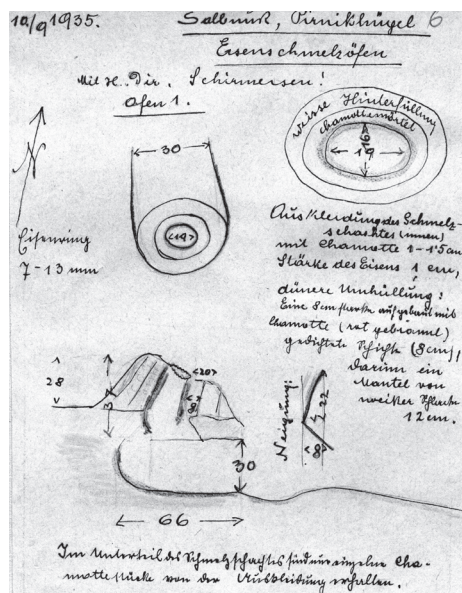 10/9 1935. Salbuuk, Pirnikhügel 6
Eisenschmelzöfen
Mit H. Dir. Schirmersen!
Ofen 1.
weisse Hinterfüllung
chamottemörtel
16
19
30
N
<19>
Eisenring
7-13 mm
Auskleidung des Schmelz-
schachtes (innen)
mit Chamotte 1-1·5 cm
Stärke des Eisens 1 cm,
Umhüllung:
Eine 8cm starke aufgebaut mit
Chamotte (rot gebrannt)
gedichtete Schichte (8cm),
darum ein
Mantel von
weicher Schlacke
12 cm.
28
<20>
Neigung:
22
8
30
66
Im Unterteil des Schmelzschachtes sind nur einzelne Cha-
mottestücke von der Auskleidung erhalten.